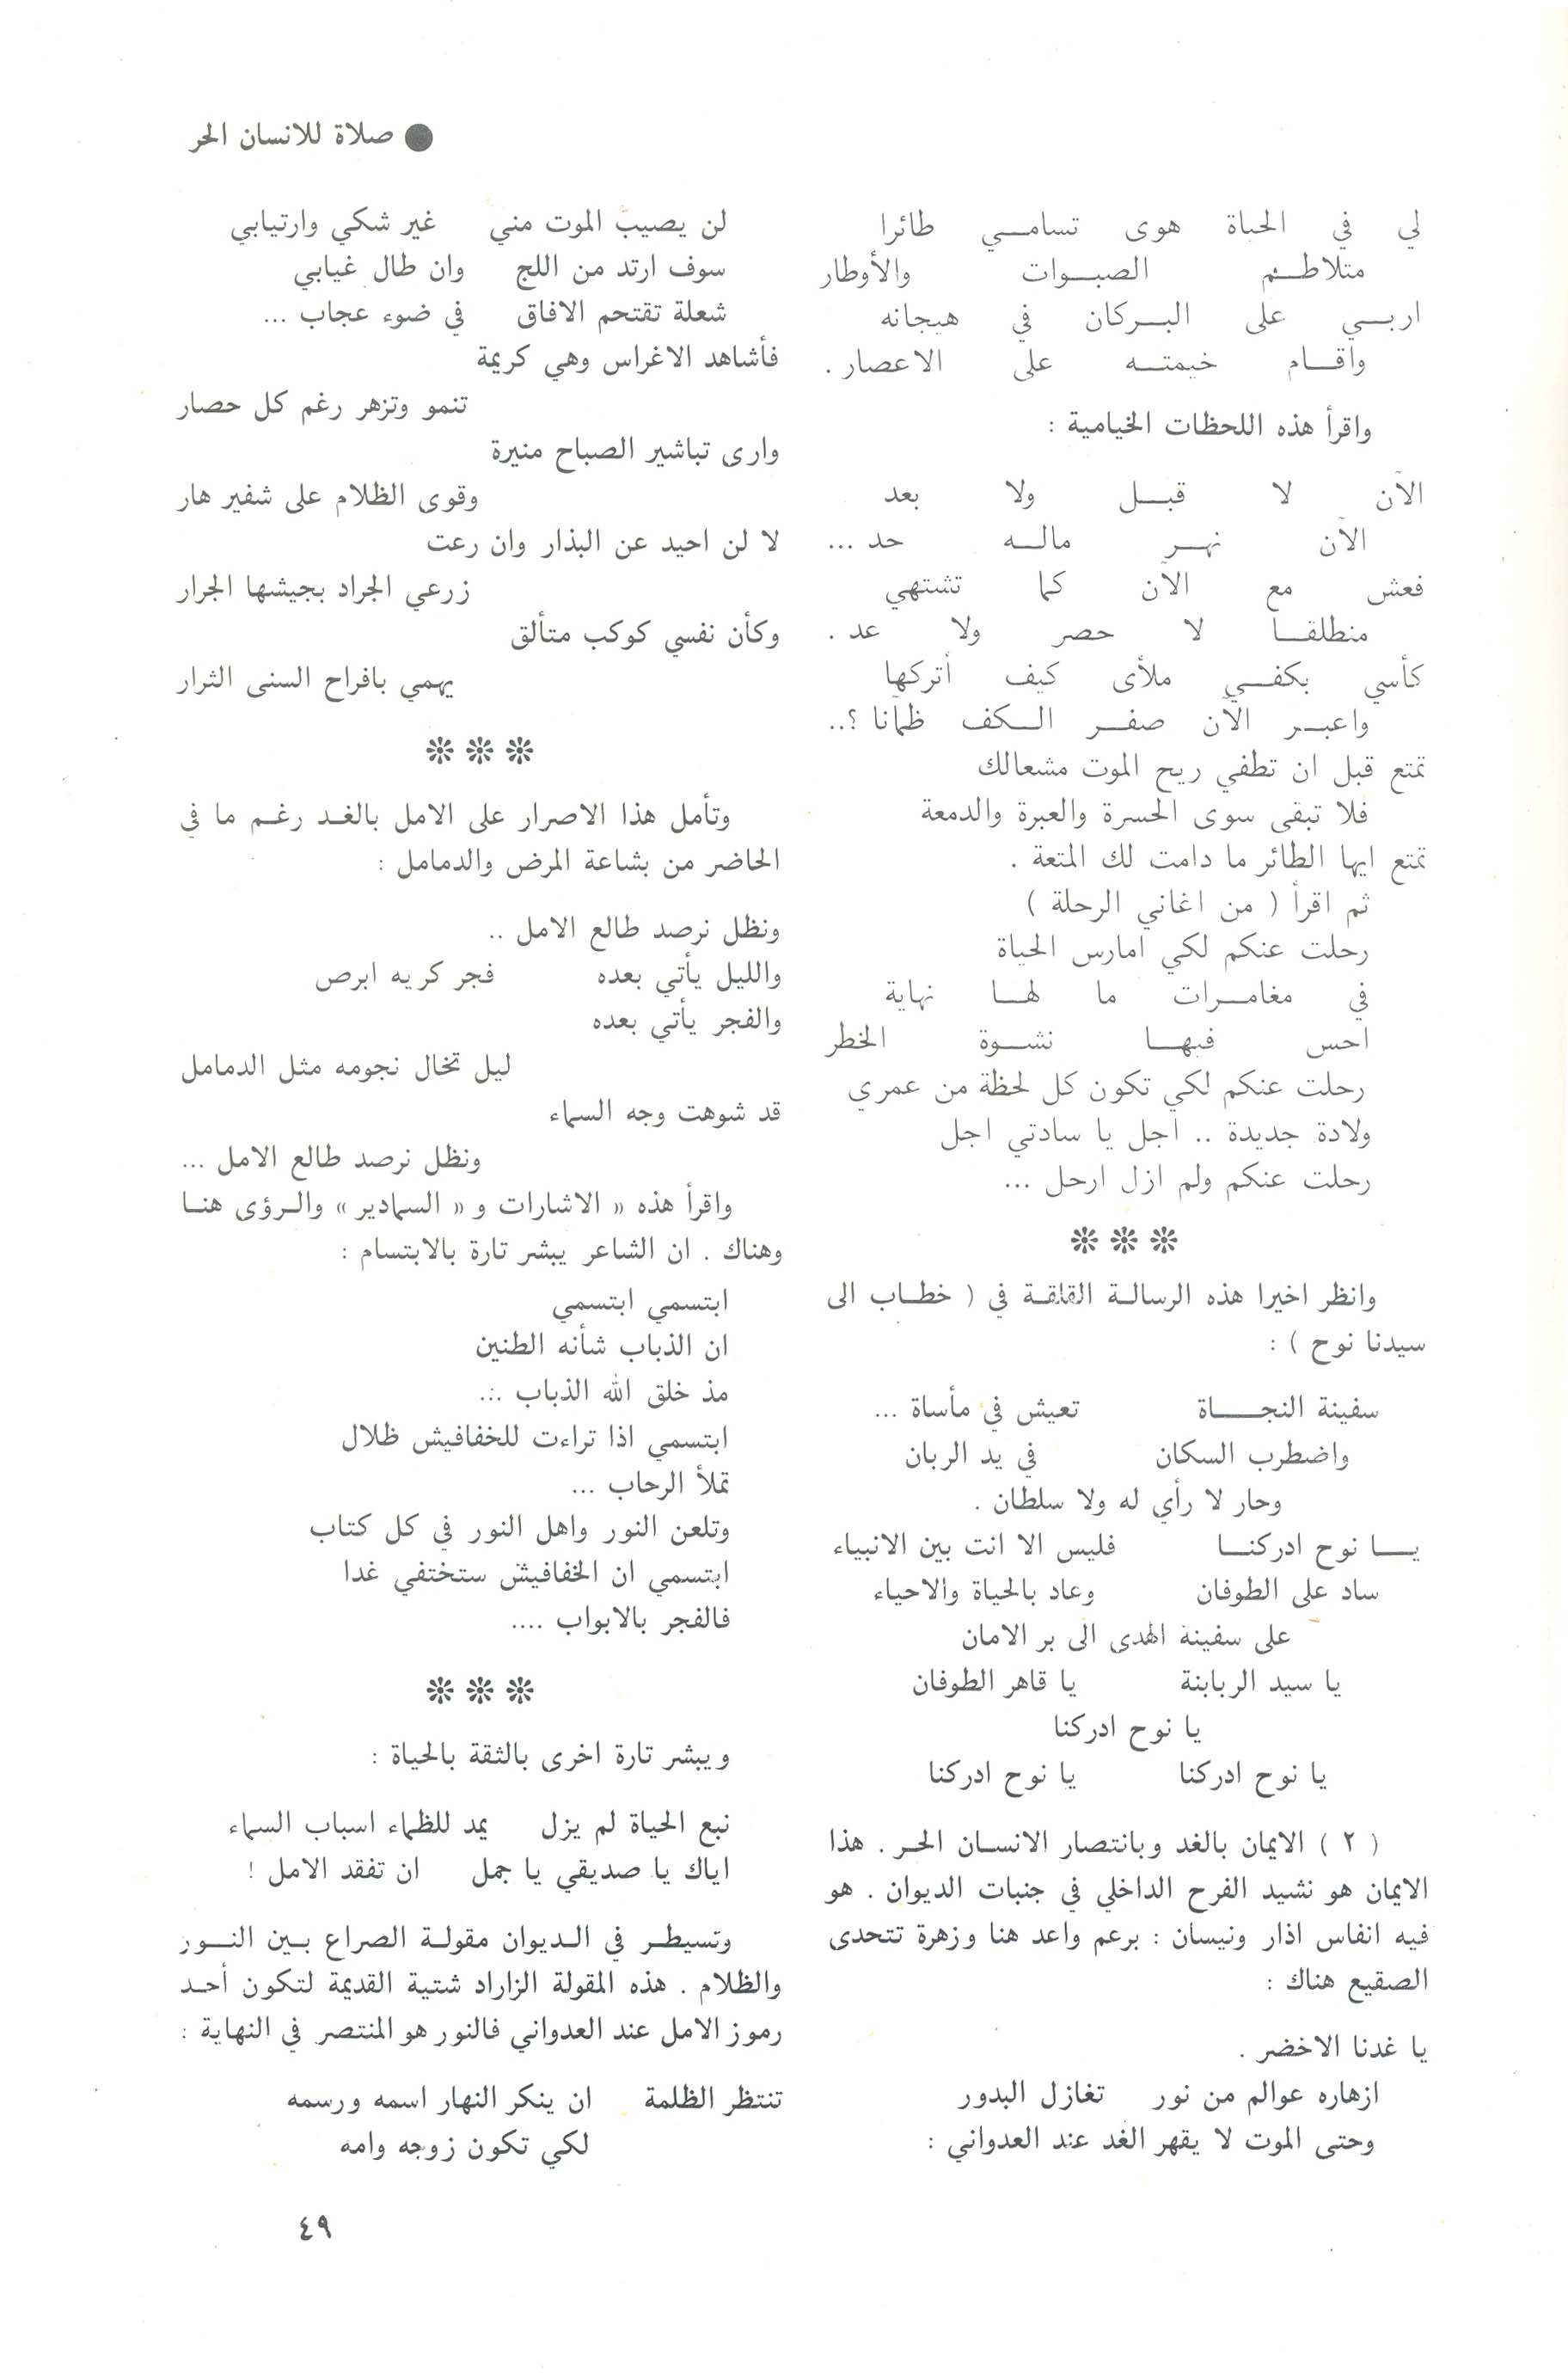 ● صلاة للانسان الحر
لي في الحياة هوى تسامي طائرا
متلاطم الصبوات والأوطار
اربي على البركان في هيجانه
واقام خيمته على الاعصار .
واقرأ هذه اللحظات الخيامية :
الآن لا قبل ولا بعد
الآن نهر ماله حد ...
فعش مع الآن كما تشتهي
منطلقا لا حصر ولا عد .
كأسي بكفي ملأى كيف أتركها
واعبر الآن صفر الكف ظمآنا ؟..
تمتع قبل ان تطفي ريح الموت مشعالك
فلا تبقى سوى الحسرة والعبرة والدمعة
تمتع ايها الطائر ما دامت لك المتعة .
ثم اقرأ ( من اغاني الرحلة )
رحلت عنكم لكي امارس الحياة
في مغامرات ما لها نهاية
احس فيها نشوة الخطر
رحلت عنكم لكي تكون كل لحظة من عمري
ولادة جديدة .. اجل يا سادتي اجل
رحلت عنكم ولم ازل ارحل ...
❊ ❊ ❊
وانظر اخيرا هذه الرسالة القلقة في ( خطاب الى
سيدنا نوح ) :
سفينة النجاة تعيش في مأساة ...
واضطرب السكان في يد الربان
وحار لا رأي له ولا سلطان .
يا نوح ادركنا فليس الا انت بين الانبياء
ساد على الطوفان وعاد بالحياة والاحياء
على سفينة الهدى الى بر الامان
يا سيد الربابنة يا قاهر الطوفان
يا نوح ادركنا
يا نوح ادركنا يا نوح ادركنا
( ٢ ) الايمان بالغد وبانتصار الانسان الحر . هذا
الايمان هو نشيد الفرح الداخلي في جنبات الديوان . هو
فيه انفاس اذار ونيسان : برعم واعد هنا وزهرة تتحدى
الصقيع هناك :
يا غدنا الاخضر .
ازهاره عوالم من نور تغازل البدور
وحتى الموت لا يقهر الغد عند العدواني :
لن يصيب الموت مني غير شكي وارتيابي
سوف ارتد من اللج وان طال غيابي
شعلة تقتحم الافاق في ضوء عجاب ...
فأشاهد الاغراس وهي كريمة
تنمو وتزهر رغم كل حصار
وارى تباشير الصباح منيرة
وقوى الظلام على شفير هار
لا لن احيد عن البذار وان رعت
زرعي الجراد بجيشها الجرار
وكأن نفسي كوكب متألق
يهمي بافراح السنى الثرار
❊ ❊ ❊
وتأمل هذا الاصرار على الامل بالغد رغم ما في
الحاضر من بشاعة المرض والدمامل :
ونظل نرصد طالع الامل ..
والليل يأتي بعده فجر كريه ابرص
والفجر يأتي بعده
ليل تخال نجومه مثل الدمامل
قد شوهت وجه السماء
ونظل نرصد طالع الامل ...
واقرأ هذه « الاشارات و « السمادير » والرؤى هنا
وهناك . ان الشاعر يبشر تارة بالابتسام :
ابتسمي ابتسمي
ان الذباب شأنه الطنين
مذ خلق الله الذباب ...
ابتسمي اذا تراءت للخفافيش ظلال
تملأ الرحاب ...
وتلعن النور واهل النور في كل كتاب
ابتسمي ان الخفافيش ستختفي غدا
فالفجر بالابواب ....
❊ ❊ ❊
ويبشر تارة اخرى بالثقة بالحياة :
نبع الحياة لم يزل يمد للظماء اسباب السماء
اياك يا صديقي يا جمل ان تفقد الامل !
وتسيطر في الديوان مقولة الصراع بين النور
والظلام . هذه المقولة الزاراد شتية القديمة لتكون أحد
رموز الامل عند العدواني فالنور هو المنتصر في النهاية :
تنتظر الظلمة ان ينكر النهار اسمه ورسمه
لكي تكون زوجه وامه
٤٩